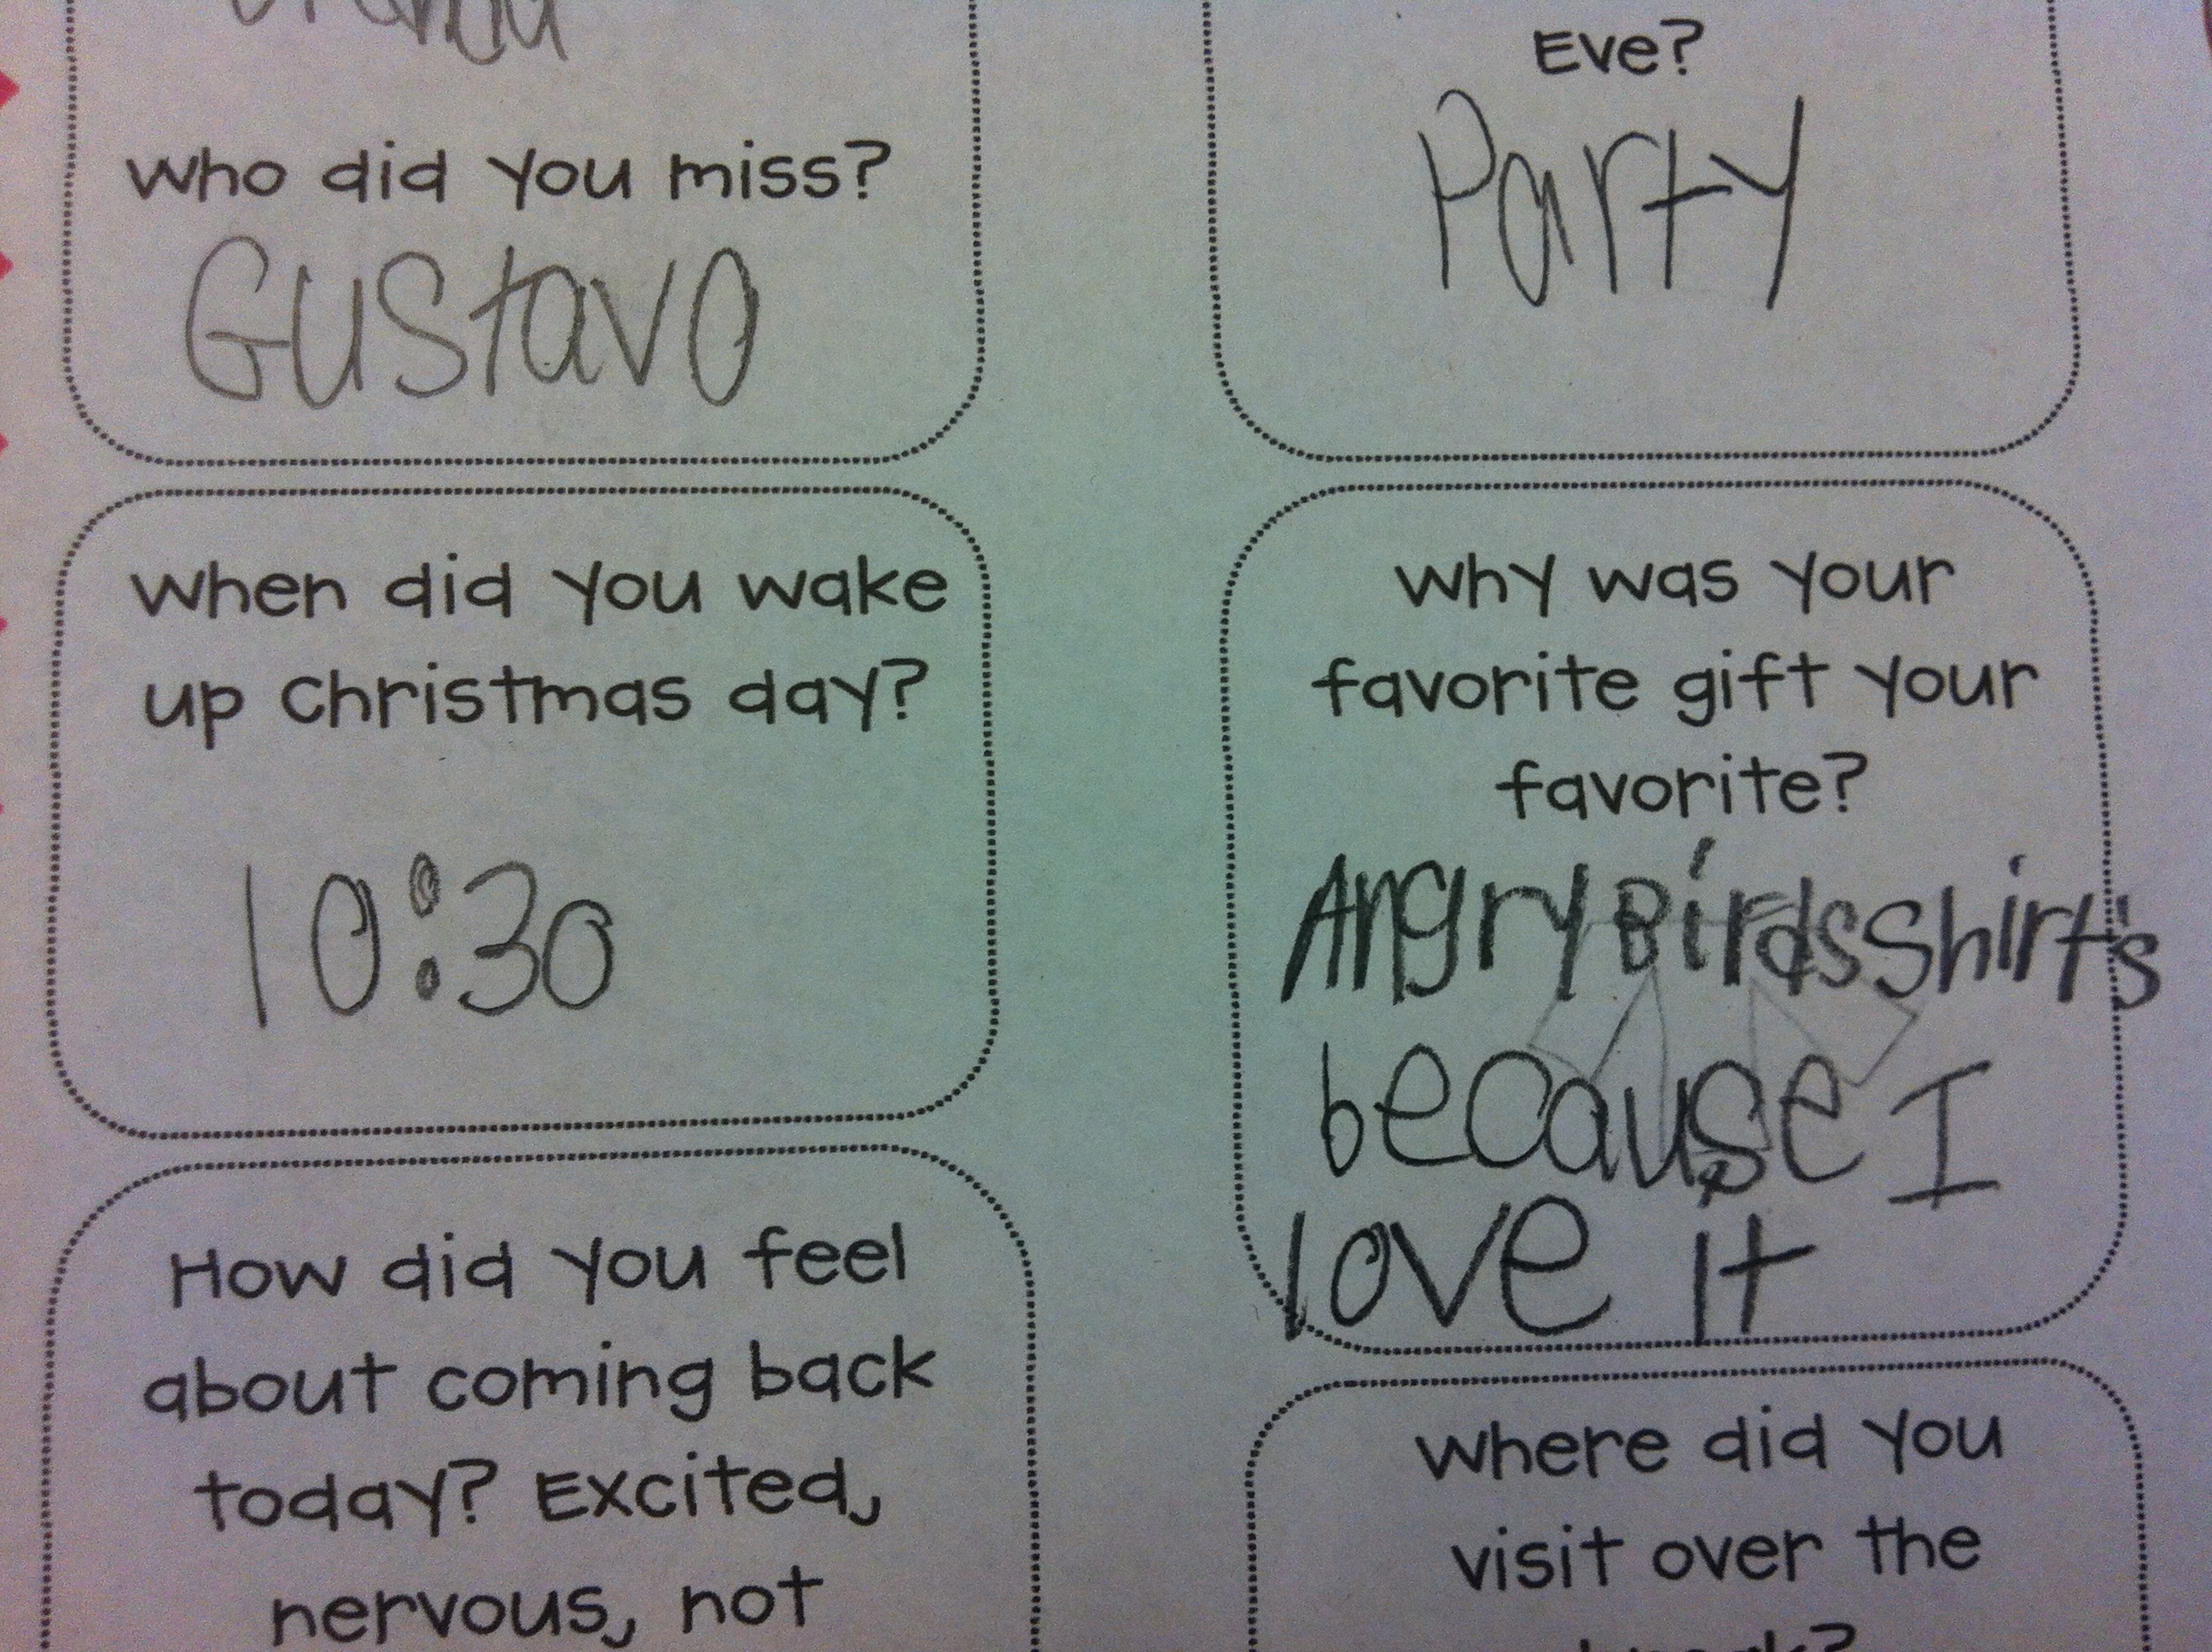 who did you miss?
Gustavo
when did you wake
up christmas day?
10:30
How did you feel
about coming back
today? Excited,
nervous, not
Eve?
Party
why was your
favorite gift your
favorite?
Angry Birds Shirt's
because I
love it
where did you
visit over the